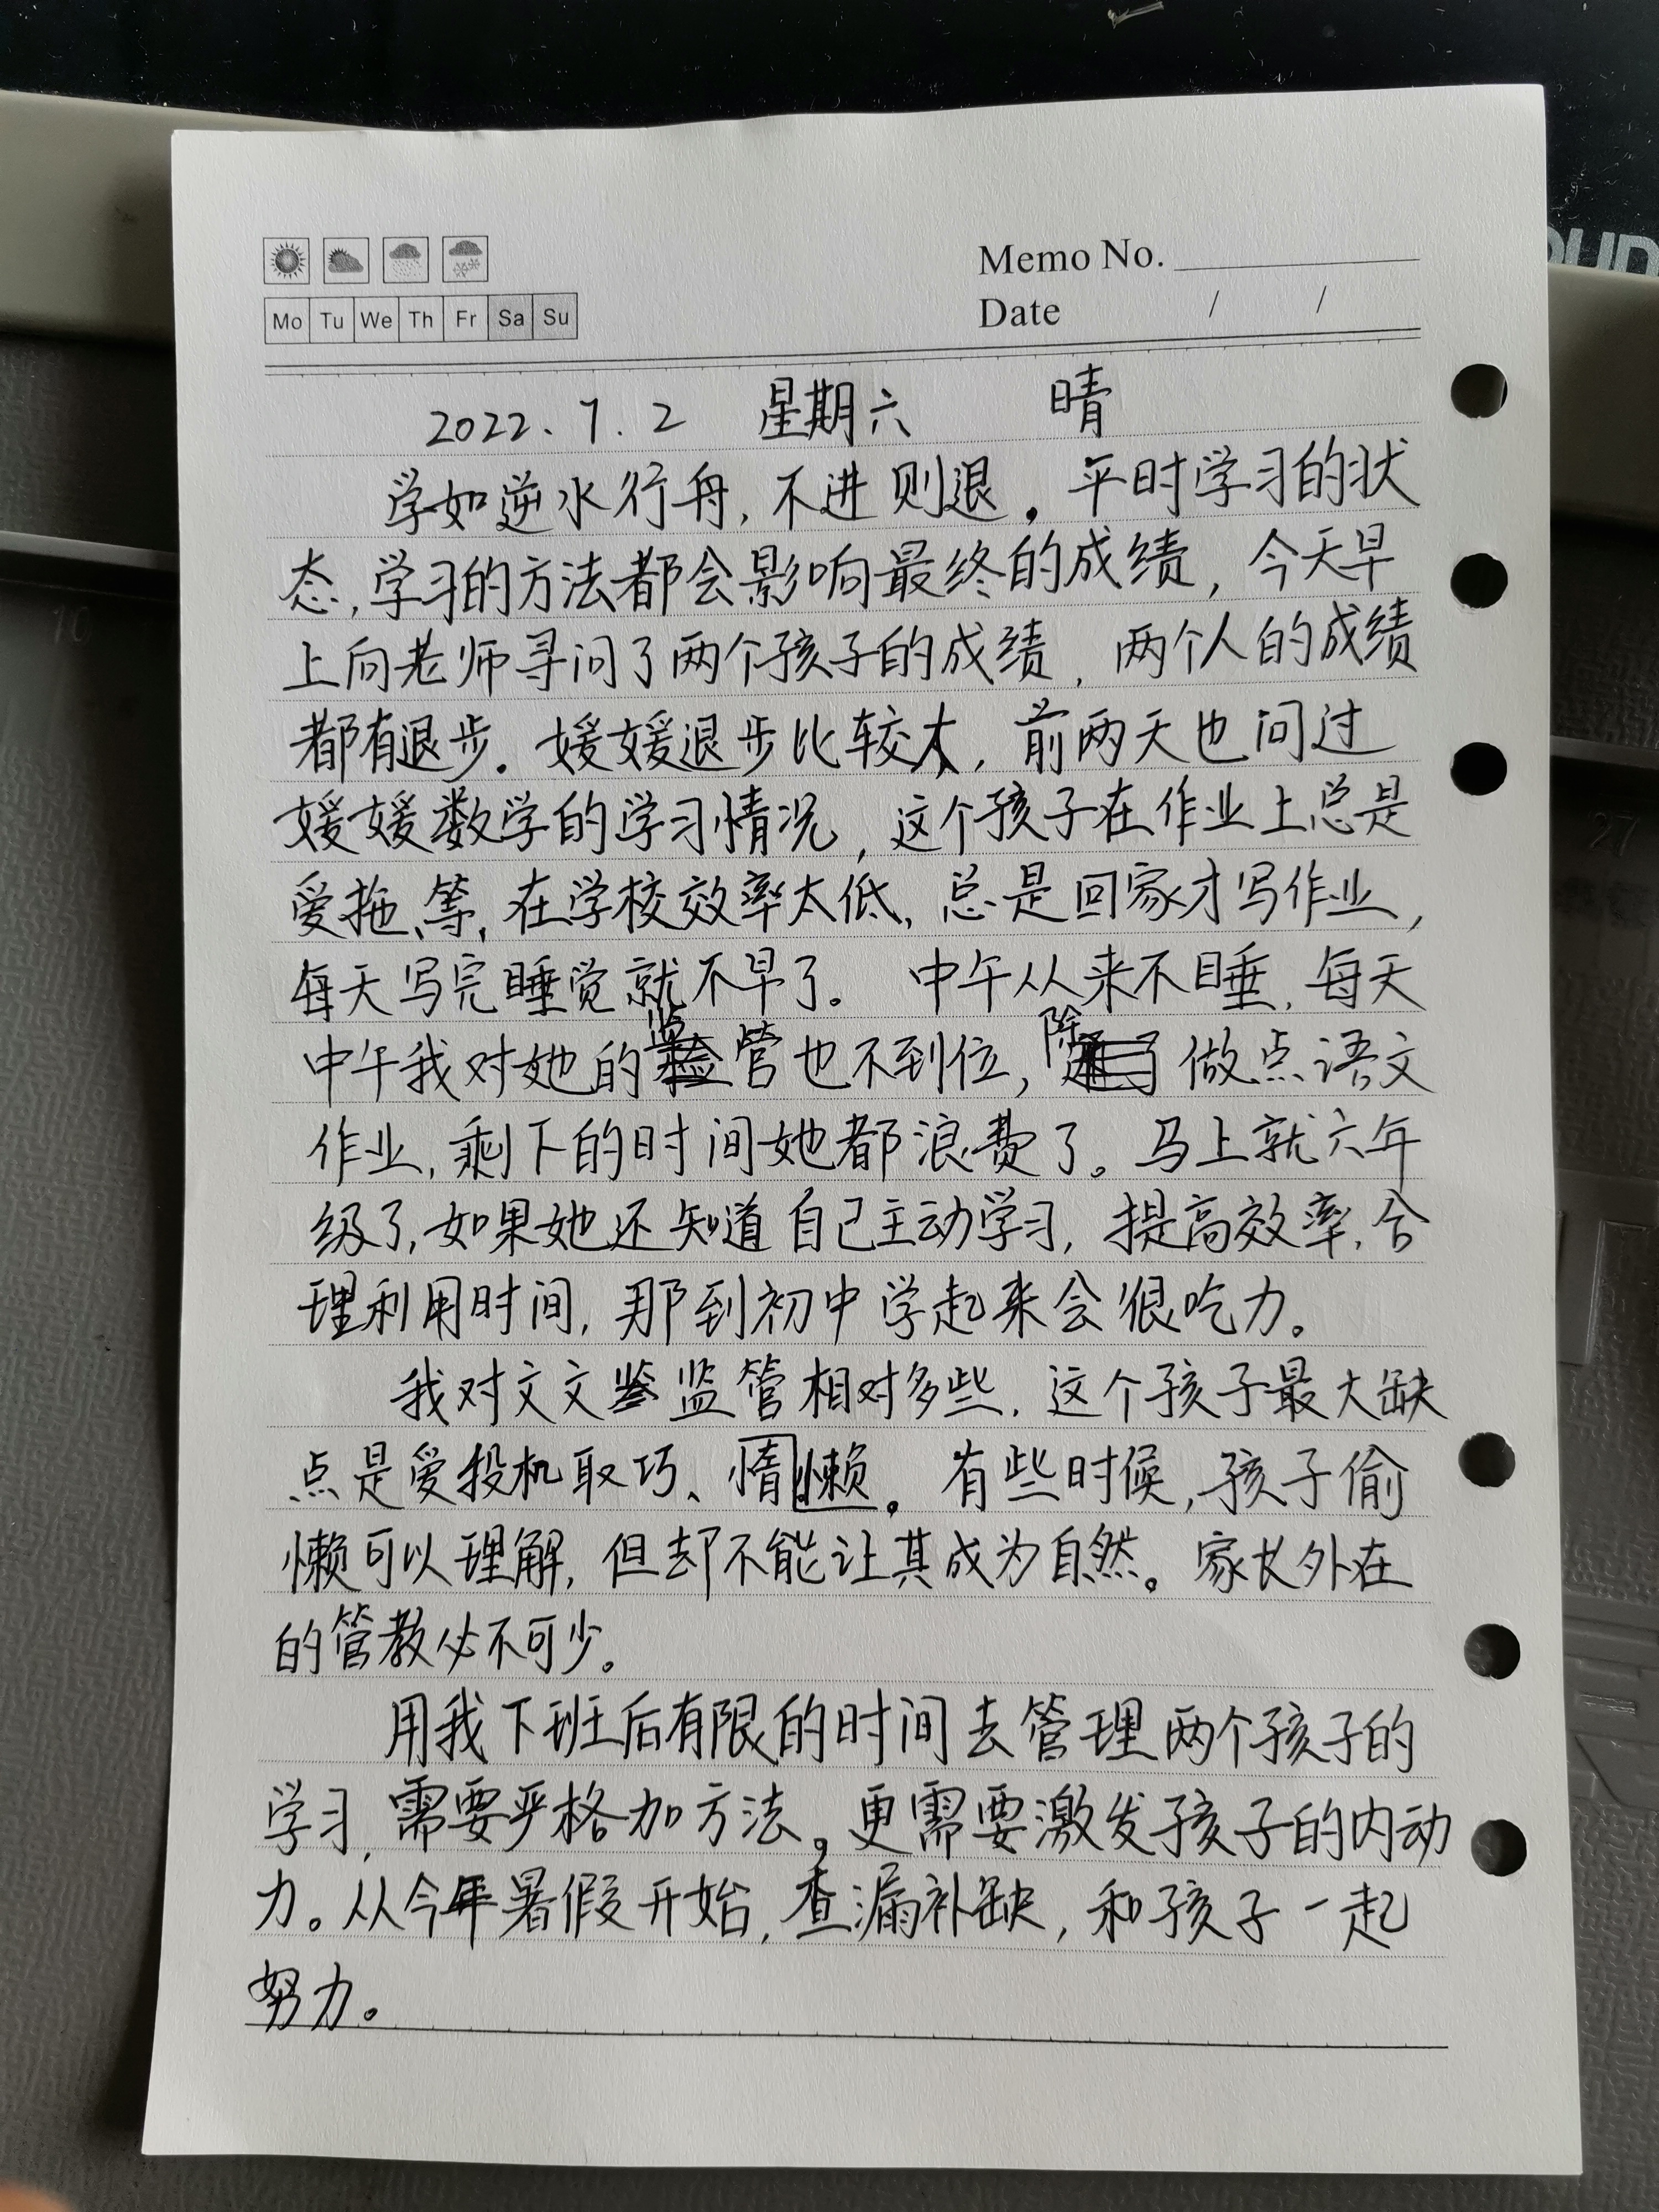 Memo No.
Mo Tu We Th Fr Sa Su
Date / /
2022.7.2 星期六 晴
学如逆水行舟,不进则退。平时学习的状
态,学习的方法都会影响最终的成绩,今天早
上向老师寻问了两个孩子的成绩,两个人的成绩
都有退步。媛媛退步比较大,前两天也问过
媛媛数学的学习情况,这个孩子在作业上总是
爱拖、等,在学校效率太低,总是回家才写作业,
每天写完睡觉就不早了。中午从来不睡,每天
中午我对她的监管也不到位,除了做点语文
作业,剩下的时间她都浪费了。马上就六年
级了,如果她还知道自己主动学习,提高效率,合
理利用时间,那到初中学起来会很吃力。
我对文文监管相对多些,这个孩子最大缺
点是爱投机取巧、惰懒。有些时候,孩子偷
懒可以理解,但却不能让其成为自然。家长外在
的管教必不可少。
用我下班后有限的时间去管理两个孩子的
学习,需要严格加方法,更需要激发孩子的内动
力。从今年暑假开始,查漏补缺,和孩子一起
努力。
10
27